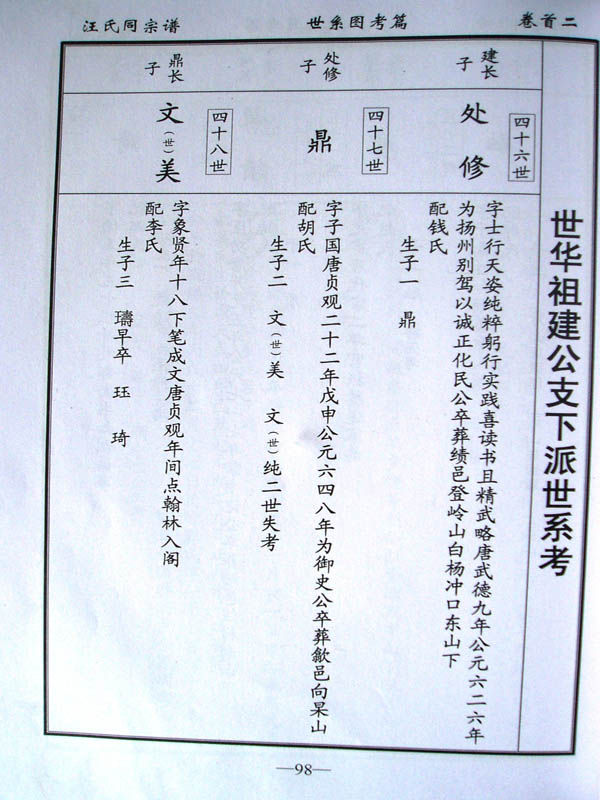 汪氏同宗谱 世系图考篇 卷首二
世华祖建公支下派世系考
四十六世
建长子
处修
字士行天姿纯粹躬行实践喜读书且精武略唐武德九年公元六二六年
为扬州别驾以诚正化民公卒葬绩邑登岭山白杨冲口东山下
配钱氏
生子一 鼎
四十七世
处修子
鼎
字子国唐贞观二十二年戊申公元六四八年为御史公卒葬歙邑向杲山
配胡氏
生子二 文(世)美 文(世)纯二世失考
四十八世
鼎长子
文(世)美
字象贤年十八下笔成文唐贞观年间点翰林入阁
配李氏
生子三 璹早卒 珏 琦
—98—